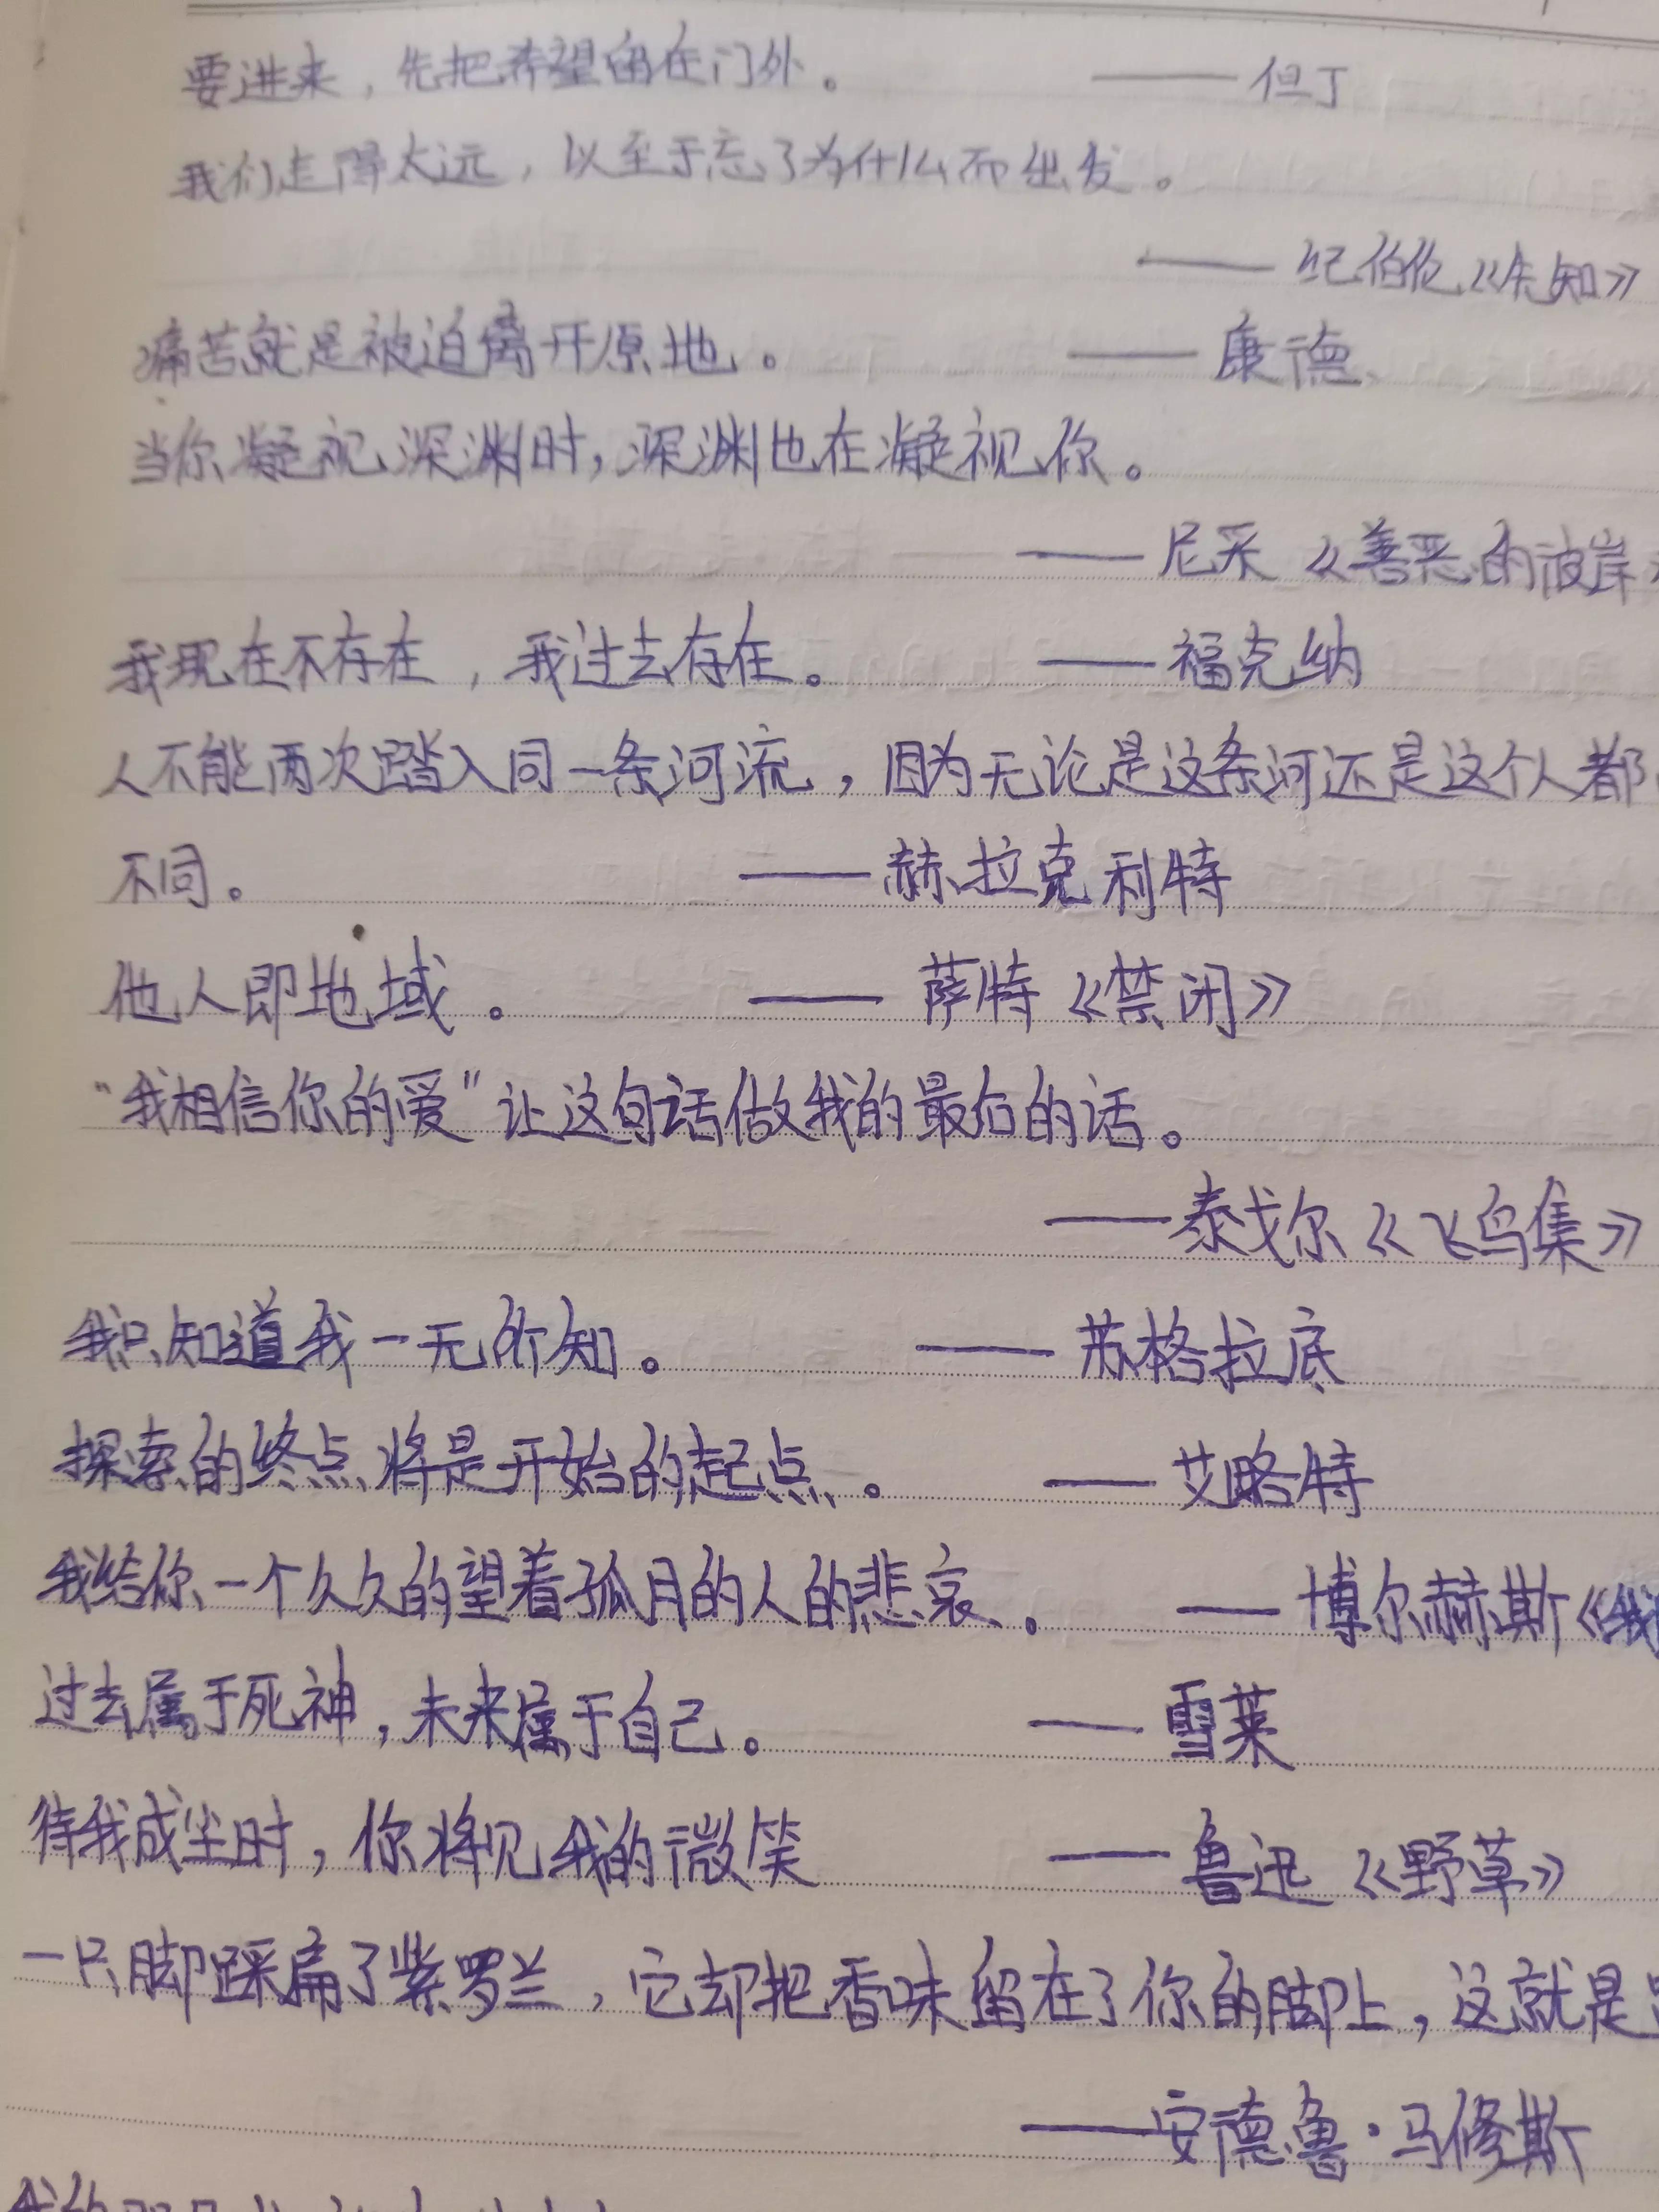 要进来，先把希望留在门外。 ——但丁
我们走得太远，以至于忘了为什么而出发。
——纪伯伦《先知》
痛苦就是被迫离开原地。 ——康德
当你凝视深渊时，深渊也在凝视你。
——尼采《善恶的彼岸
我现在不存在，我过去存在。 ——福克纳
人不能两次踏入同一条河流，因为无论是这条河还是这个人都
不同。 ——赫拉克利特
他人即地域。 ——萨特《禁闭》
“我相信你的爱”让这句话做我的最后的话。
——泰戈尔《飞鸟集》
我只知道我一无所知。 ——苏格拉底
探索的终点将是开始的起点。 ——艾略特
我给你一个久久的望着孤月的人的悲哀。 ——博尔赫斯《我
过去属于死神，未来属于自己。 —雪莱
待我成尘时，你将见我的微笑 ——鲁迅《野草》
一只脚踩扁了紫罗兰，它却把香味留在了你的脚上，这就是
——安德鲁·马修斯